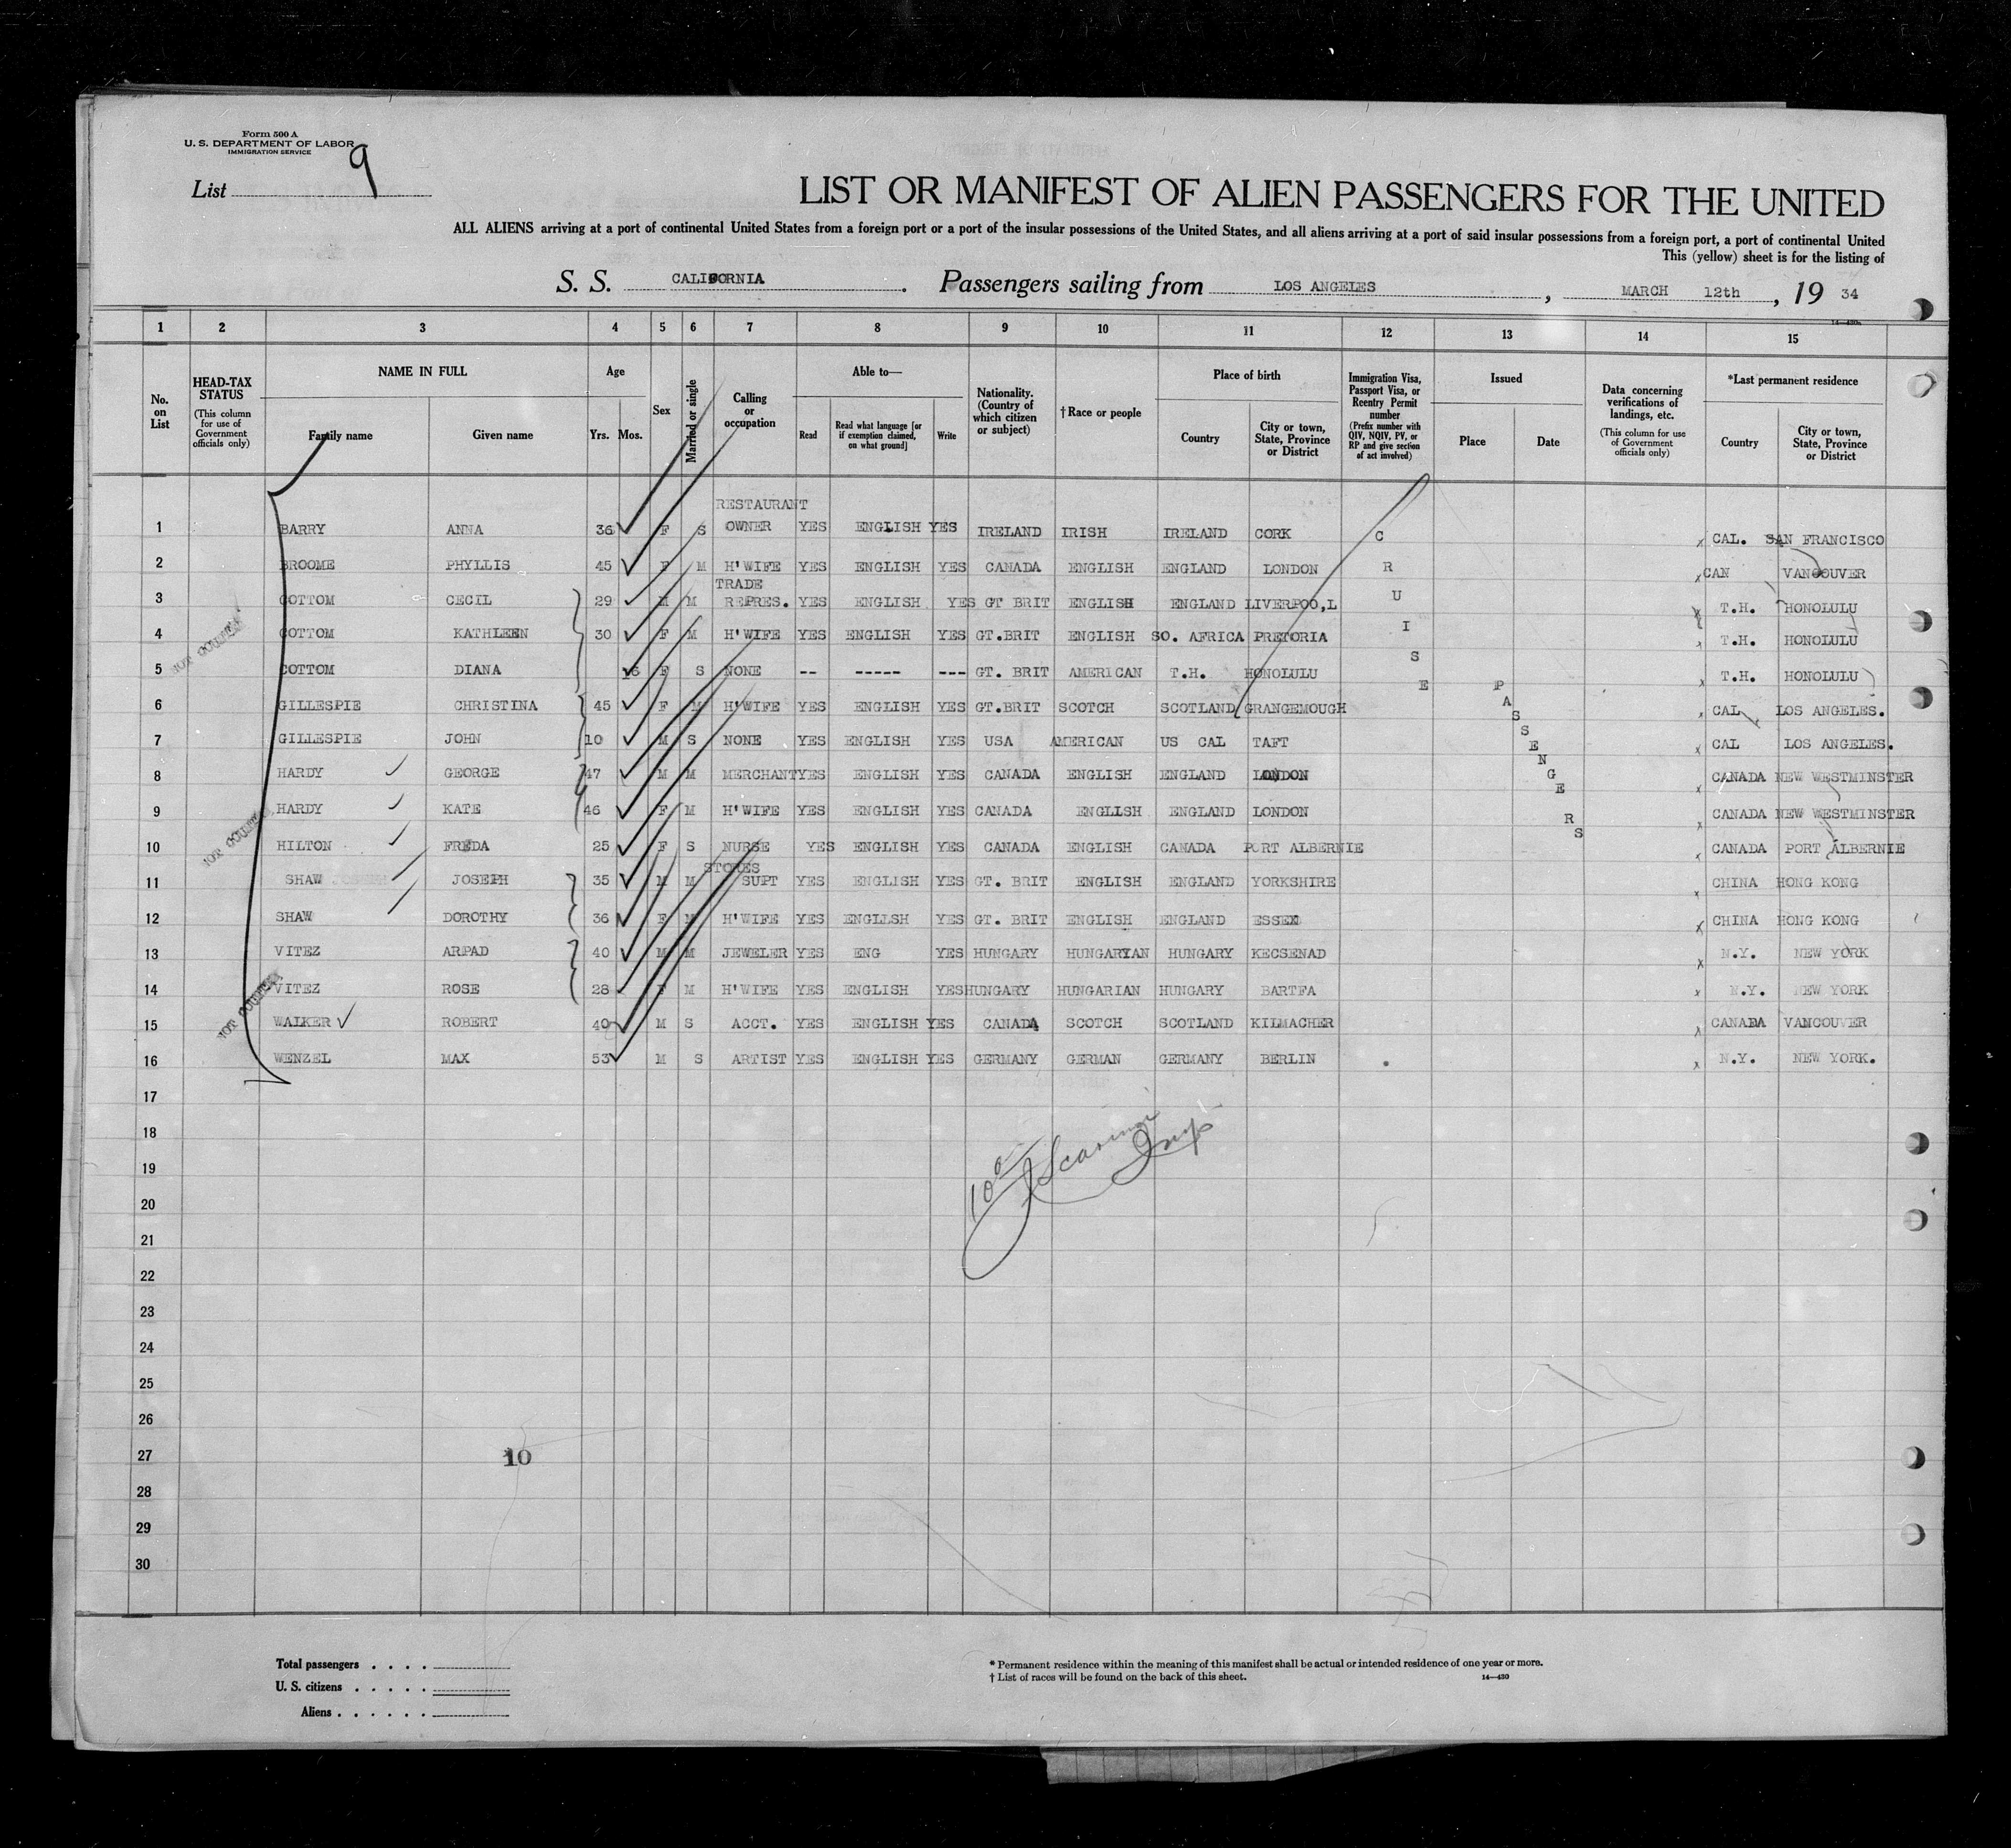 Form 500 A
U. S. DEPARTMENT OF LABOR
IMMIGRATION SERVICE
List 9
LIST OR MANIFEST OF ALIEN PASSENGERS FOR THE UNITED
ALL ALIENS arriving at a port of continental United States from a foreign port or a port of the insular possessions of the United States, and all aliens arriving at a port of said insular possessions from a foreign port, a port of continental United
This (yellow) sheet is for the listing of
S. S. CALIFORNIA. Passengers sailing from LOS ANGELES, MARCH 12th, 19 34
14—430a
1 2 3 4 5 6 7 8 9 10 11 12 13 14 15
No. on List
HEAD-TAX STATUS (This column for use of Government officials only)
NAME IN FULL
Family name Given name
Age
Yrs. Mos.
Sex
Married or single
Calling or occupation
Able to—
Read Read what language [or if exemption claimed, on what ground] Write
Nationality. (Country of which citizen or subject)
† Race or people
Place of birth
Country City or town, State, Province or District
Immigration Visa, Passport Visa, or Reentry Permit number (Prefix number with QIV, NQIV, PV, or RP and give section of act involved)
Issued
Place Date
Data concerning verifications of landings, etc. (This column for use of Government officials only)
*Last permanent residence
Country City or town, State, Province or District
1 BARRY ANNA 36 F S RESTAURANT OWNER YES ENGLISH YES IRELAND IRISH IRELAND CORK x CAL. SAN FRANCISCO
2 BROOME PHYLLIS 45 F M H'WIFE YES ENGLISH YES CANADA ENGLISH ENGLAND LONDON x CAN VANCOUVER
3 COTTOM CECIL 29 M M TRADE REPRES. YES ENGLISH YES GT BRIT ENGLISH ENGLAND LIVERPOO,L x T.H. HONOLULU
4 COTTOM KATHLEEN 30 F M H'WIFE YES ENGLISH YES GT.BRIT ENGLISH SO. AFRICA PRETORIA x T.H. HONOLULU
5 COTTOM DIANA 16 F S NONE -- ----- --- GT. BRIT AMERICAN T.H. HONOLULU x T.H. HONOLULU
6 GILLESPIE CHRISTINA 45 F M H'WIFE YES ENGLISH YES GT.BRIT SCOTCH SCOTLAND GRANGEMOUGH x CAL LOS ANGELES.
7 GILLESPIE JOHN 10 M S NONE YES ENGLISH YES USA AMERICAN US CAL TAFT x CAL LOS ANGELES.
8 HARDY GEORGE 47 M M MERCHANT YES ENGLISH YES CANADA ENGLISH ENGLAND LONDON x CANADA NEW WESTMINSTER
9 HARDY KATE 46 F M H'WIFE YES ENGLISH YES CANADA ENGLLSH ENGLAND LONDON x CANADA NEW WESTMINSTER
10 HILTON FREDA 25 F S NURSE YES ENGLISH YES CANADA ENGLISH CANADA PORT ALBERNIE x CANADA PORT ALBERNIE
11 SHAW JOSEPH 35 M M STORES SUPT YES ENGLISH YES GT. BRIT ENGLISH ENGLAND YORKSHIRE x CHINA HONG KONG
12 SHAW DOROTHY 36 F M H'WIFE YES ENGLLSH YES GT. BRIT ENGLISH ENGLAND ESSEX x CHINA HONG KONG
13 VITEZ ARPAD 40 M M JEWELER YES ENG YES HUNGARY HUNGARYAN HUNGARY KECSENAD x N.Y. NEW YORK
14 VITEZ ROSE 28 F M H'WIFE YES ENGLISH YES HUNGARY HUNGARIAN HUNGARY BARTFA x N.Y. NEW YORK
15 WALKER ROBERT 40 M S ACCT. YES ENGLISH YES CANADA SCOTCH SCOTLAND KILMACHER x CANADA VANCOUVER
16 WENZEL MAX 53 M S ARTIST YES ENGLISH YES GERMANY GERMAN GERMANY BERLIN x N.Y. NEW YORK.
CRUISE PASSENGERS
NOT COUNTED
NOT COUNTED
NOT COUNTED
17
18
19
20
21
22
23
24
25
26
27
28
29
30
10
Total passengers . . . .
U. S. citizens . . . . .
Aliens . . . . . .
* Permanent residence within the meaning of this manifest shall be actual or intended residence of one year or more.
† List of races will be found on the back of this sheet. 14—430